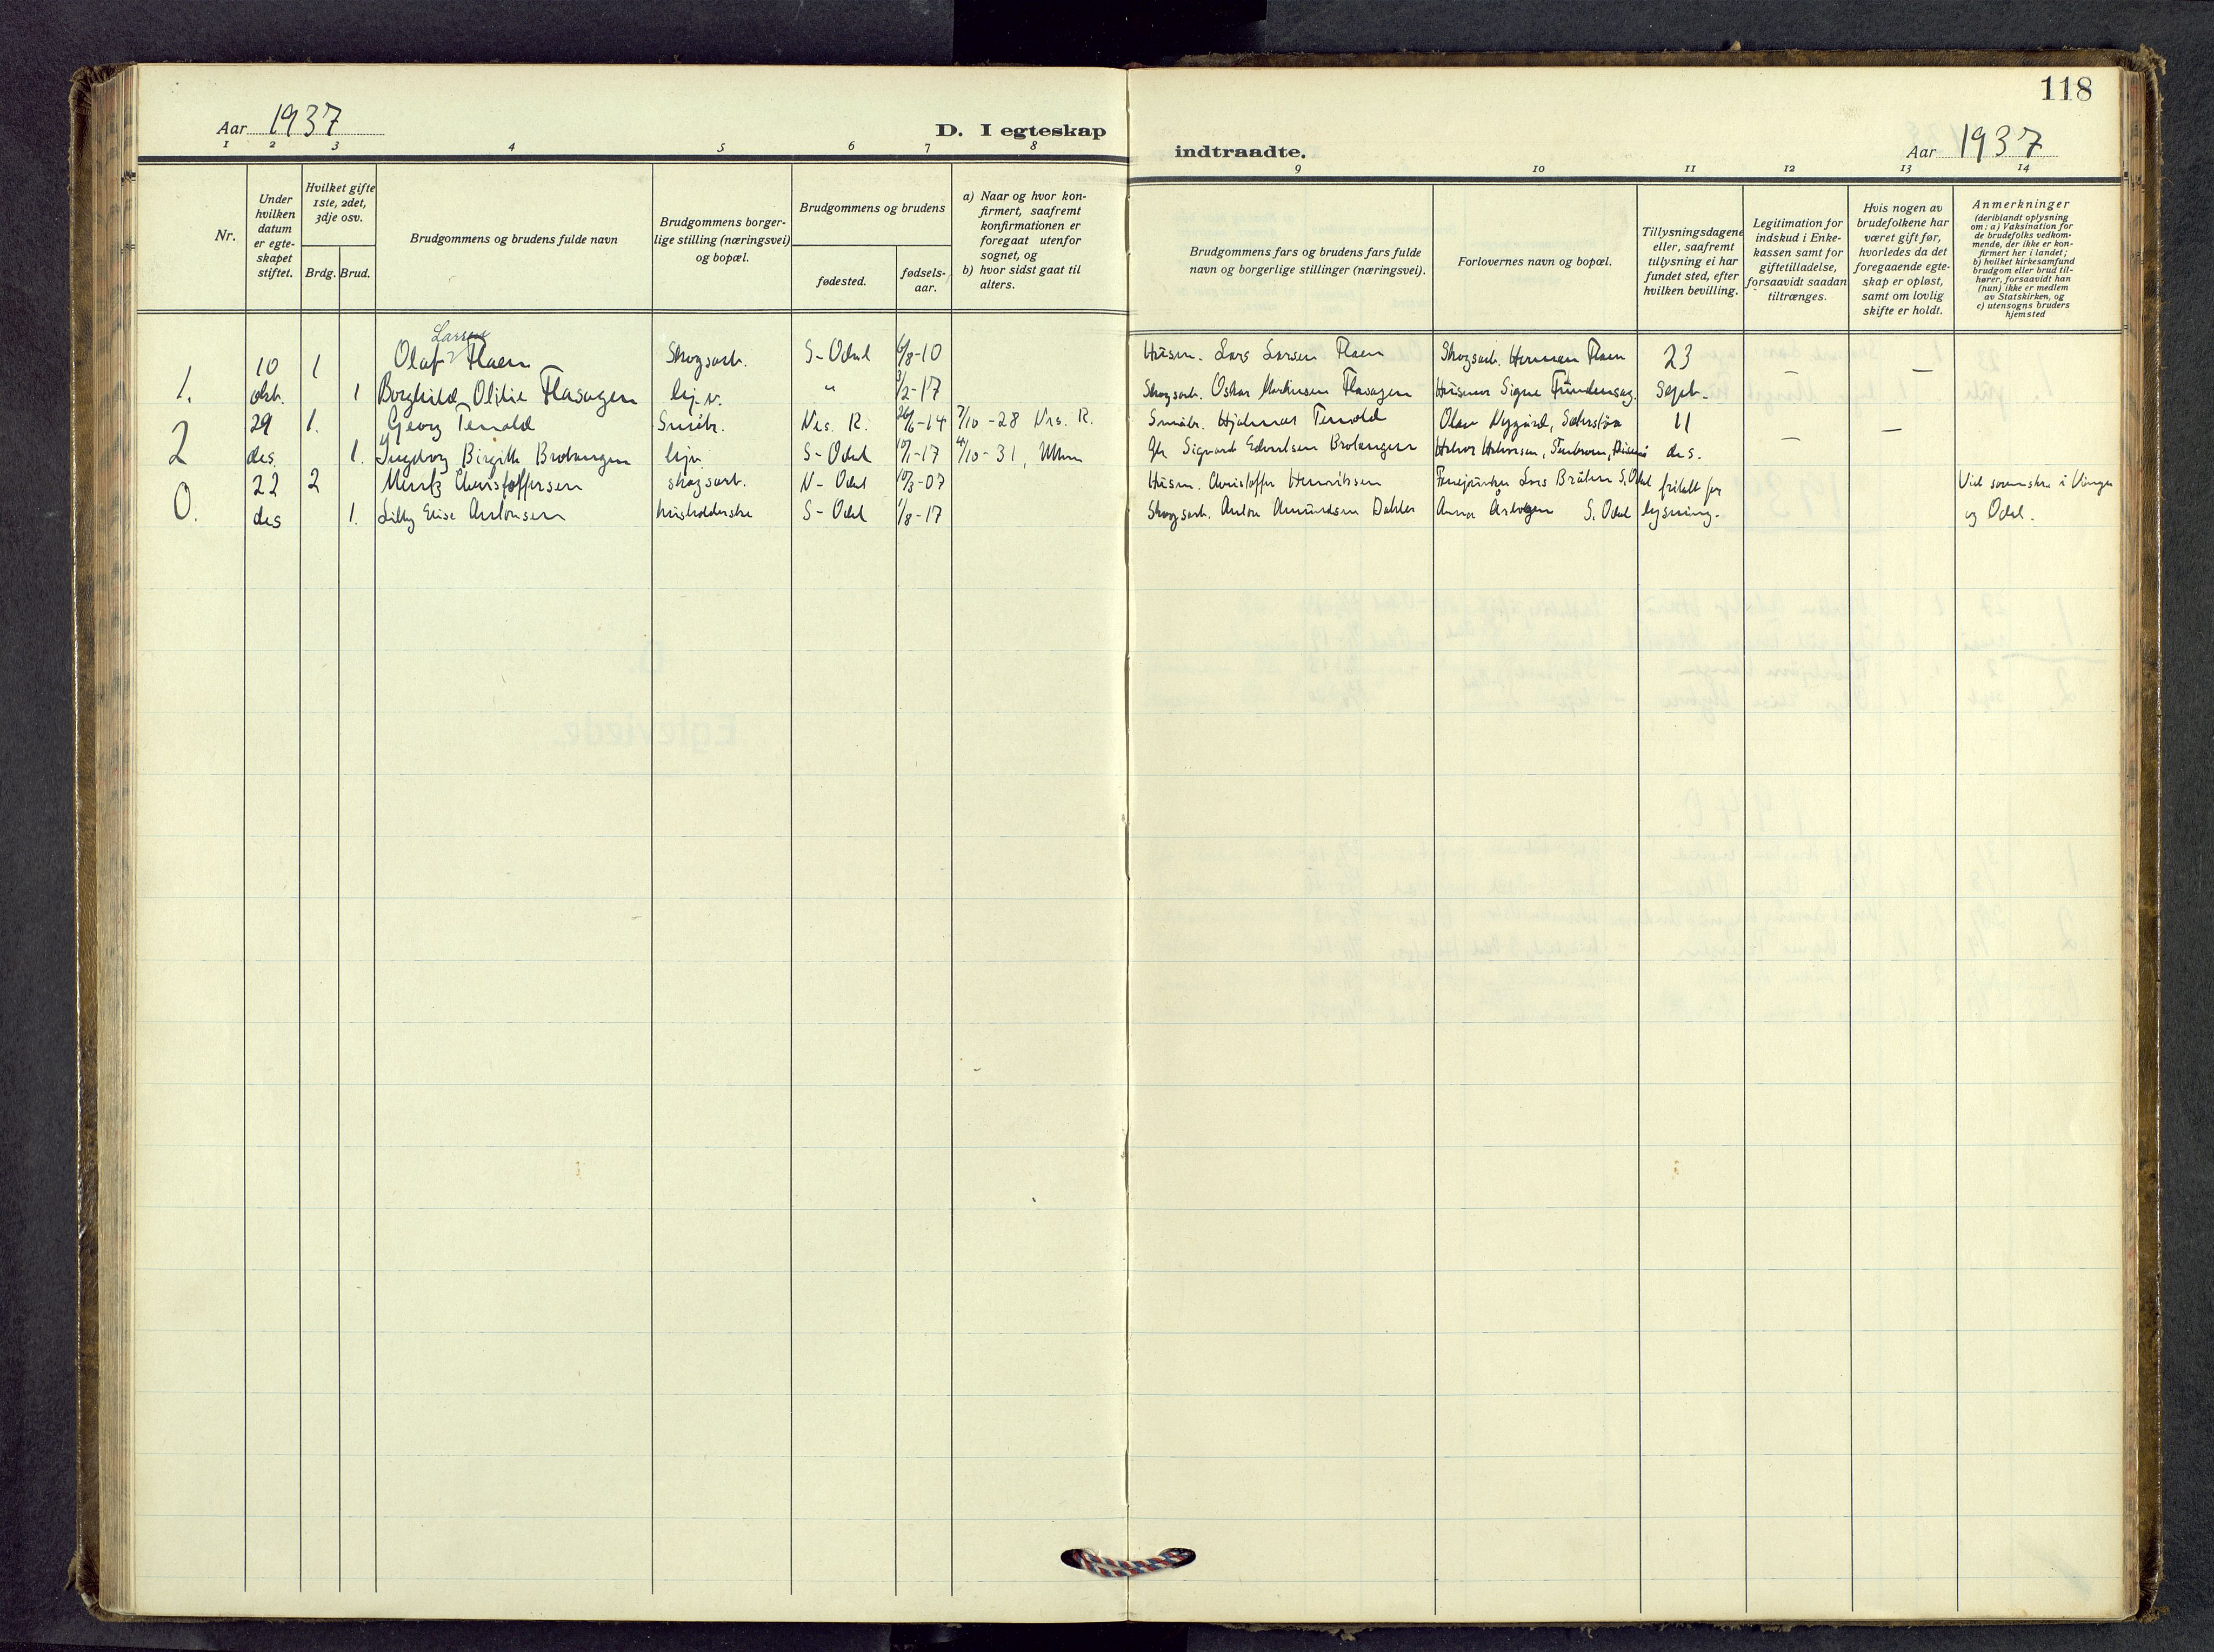 118
Aar 1937
D. I egteskap
indtraadte.
Aar 1937
1 2 3 4 5 6 7 8
9 10 11 12 13 14
Nr.
Under
hvilken
datum
er egte-
skapet
stiftet.
Hvilket gifte
1ste, 2det,
3dje osv.
Brdg. Brud.
Brudgommens og brudens fulde navn
Brudgommens borger-
lige stilling (næringsvei)
og bopæl.
Brudgommens og brudens
fødested.
fødsels-
aar.
a) Naar og hvor kon-
firmert, saafremt
konfirmationen er
foregaat utenfor
sognet, og
b) hvor sidst gaat til
alters.
Brudgommens fars og brudens fars fulde
navn og borgerlige stillinger (næringsvei).
Forlovernes navn og bopæl.
Tillysningsdagene
eller, saafremt
tillysning ei har
fundet sted, efter
hvilken bevilling.
Legitimation for
indskud i Enke-
kassen samt for
giftetilladelse,
forsaavidt saadan
tiltrænges.
Hvis nogen av
brudefolkene har
været gift før,
hvorledes da det
foregaaende egte-
skap er opløst,
samt om lovlig
skifte er holdt.
Anmerkninger
(deriblandt oplysning
om: a) Vaksination for
de brudefolks vedkom-
mende, der ikke er kon-
firmert her i landet;
b) hvilket kirkesamfund
brudgom eller brud til-
hører, forsaavidt han
(hun) ikke er medlem
av Statskirken, og
c) utensogns bruders
hjemsted
Larsen
10 1 Olaf Flaen Skogsarb. S-Odal 6/8-10 Husm. Lars Larsen Flaen Skogsarb. Herman Flaen 23
1. okt. 1 Borghild Otilie Flasagen hj.v. " 3/2-17 Skogsarb. Oskar Flasagen Signe Sept. – –
29 1. Georg Ternold Småbr. Nes. R. 26/6-14 7/10-28 Nes. R. Småbr. Hjalmar Ternold Olav Nygård, 11
2 des. 1. Ingeborg Birgitte hjv. S-Odal 10/1-17 4/10-31, Gb. Sigvard Halvor Halvorsen, des. – –
22 2 Christoffersen skogsarb. N-Odal 10/3-07 Husm. Christoffer Henriksen Lars Bråten S. Odal fritatt for i Vinger
0. des 1. Lilly Elise Antonsen husholderske S-Odal 1/8-17 Skogsarb. Anton Amundsen Anna S. Odal lysning. og Odal.